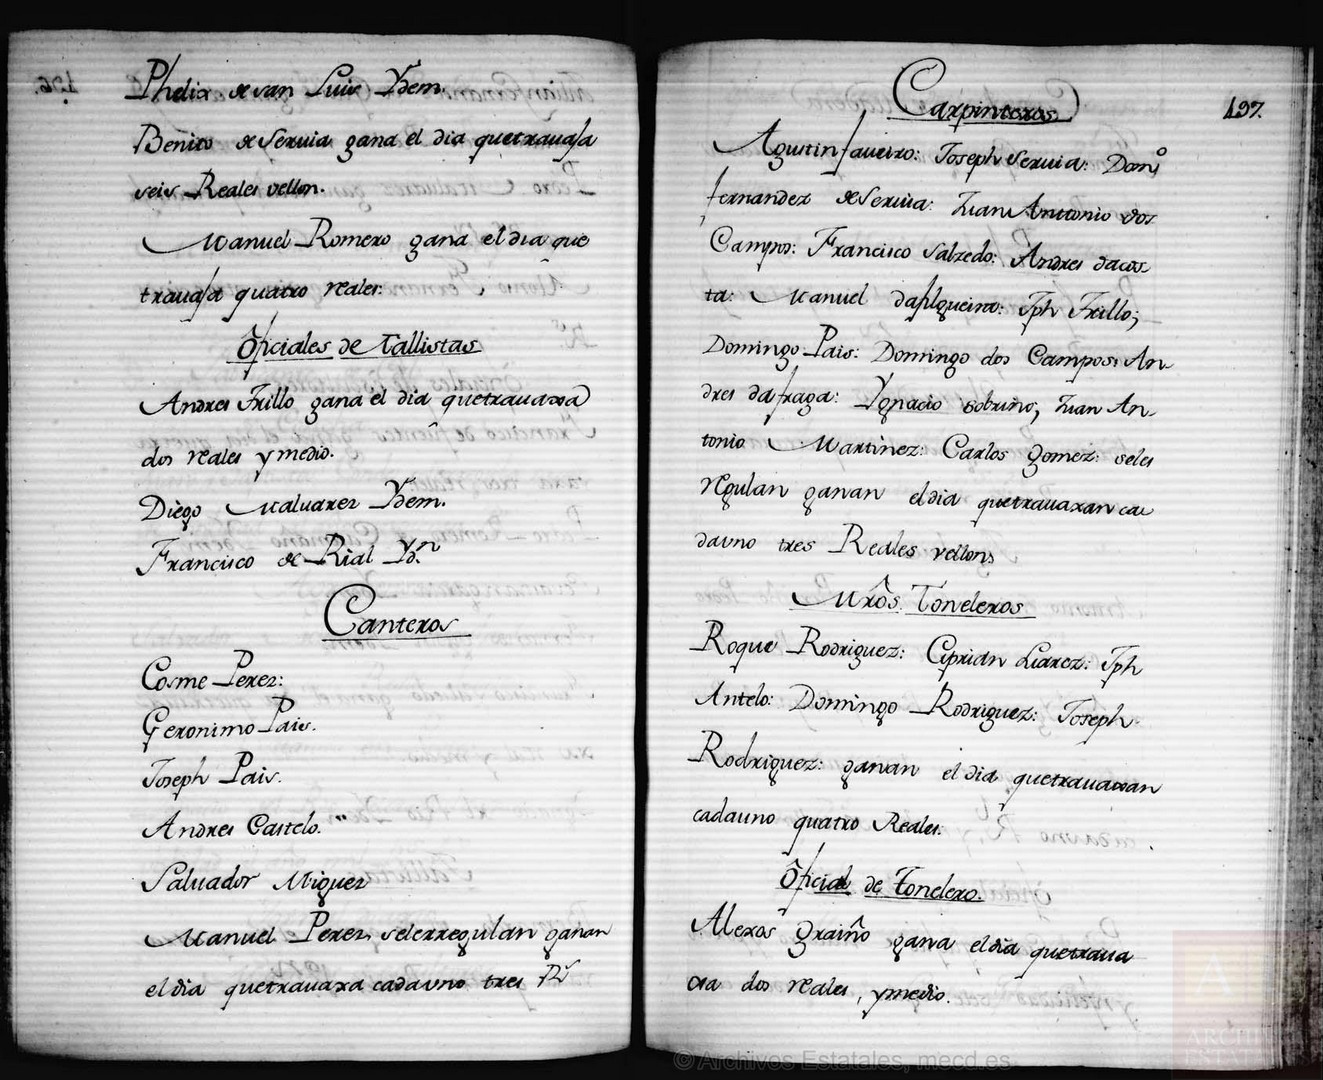 Phelix de san Luis Ydem.
Benito de Seruia gana el dia quetrauaja
seis Reales vellon.
Manuel Romero gana el dia que
trauaja quatro reales.
Ôficiales de Tallistas
Andres Trillo gana el dia quetrauaxa
dos reales y medio.
Diego Maluarez Ydem.
Francisco de Rial Yd.n
Canteros
Cosme Perez:
Geronimo Pais.
Joseph Pais.
Andres Castelo.
Saluador Miguez
Manuel Perez, selerregulan ganan
el dia quetrauaxa cadauno tres R.s
Carpinteros
197.
Agustin faueiro: Joseph Seruia: Dom.o
fernandez de Seruia: Juan Anttonio dos
Campos: Francisco Salzedo: Andres dacos
ta: Manuel dafilgueira: Jph Trillo;
Domingo Pais: Domingo dos Campos: An
dres dafraga: Ygnacio Sobrino; Juan An-
tonio Martinez: Carlos Gomez: seles
regulan ganan el dia quetrauaxan ca
dauno tres Reales vellon
Mrôs. Toneleros
Roque Rodriguez: Ciprian Liarez: Jph
Antelo: Domingo Rodriguez: Joseph
Rodriguez: ganan el dia quetrauaxan
cadauno quatro Reales.
Ôficial de Tonelero.
Alexos Graiño gana el dia quetraua
xa dos reales, y medio.
© Archivos Estatales, mecd.es